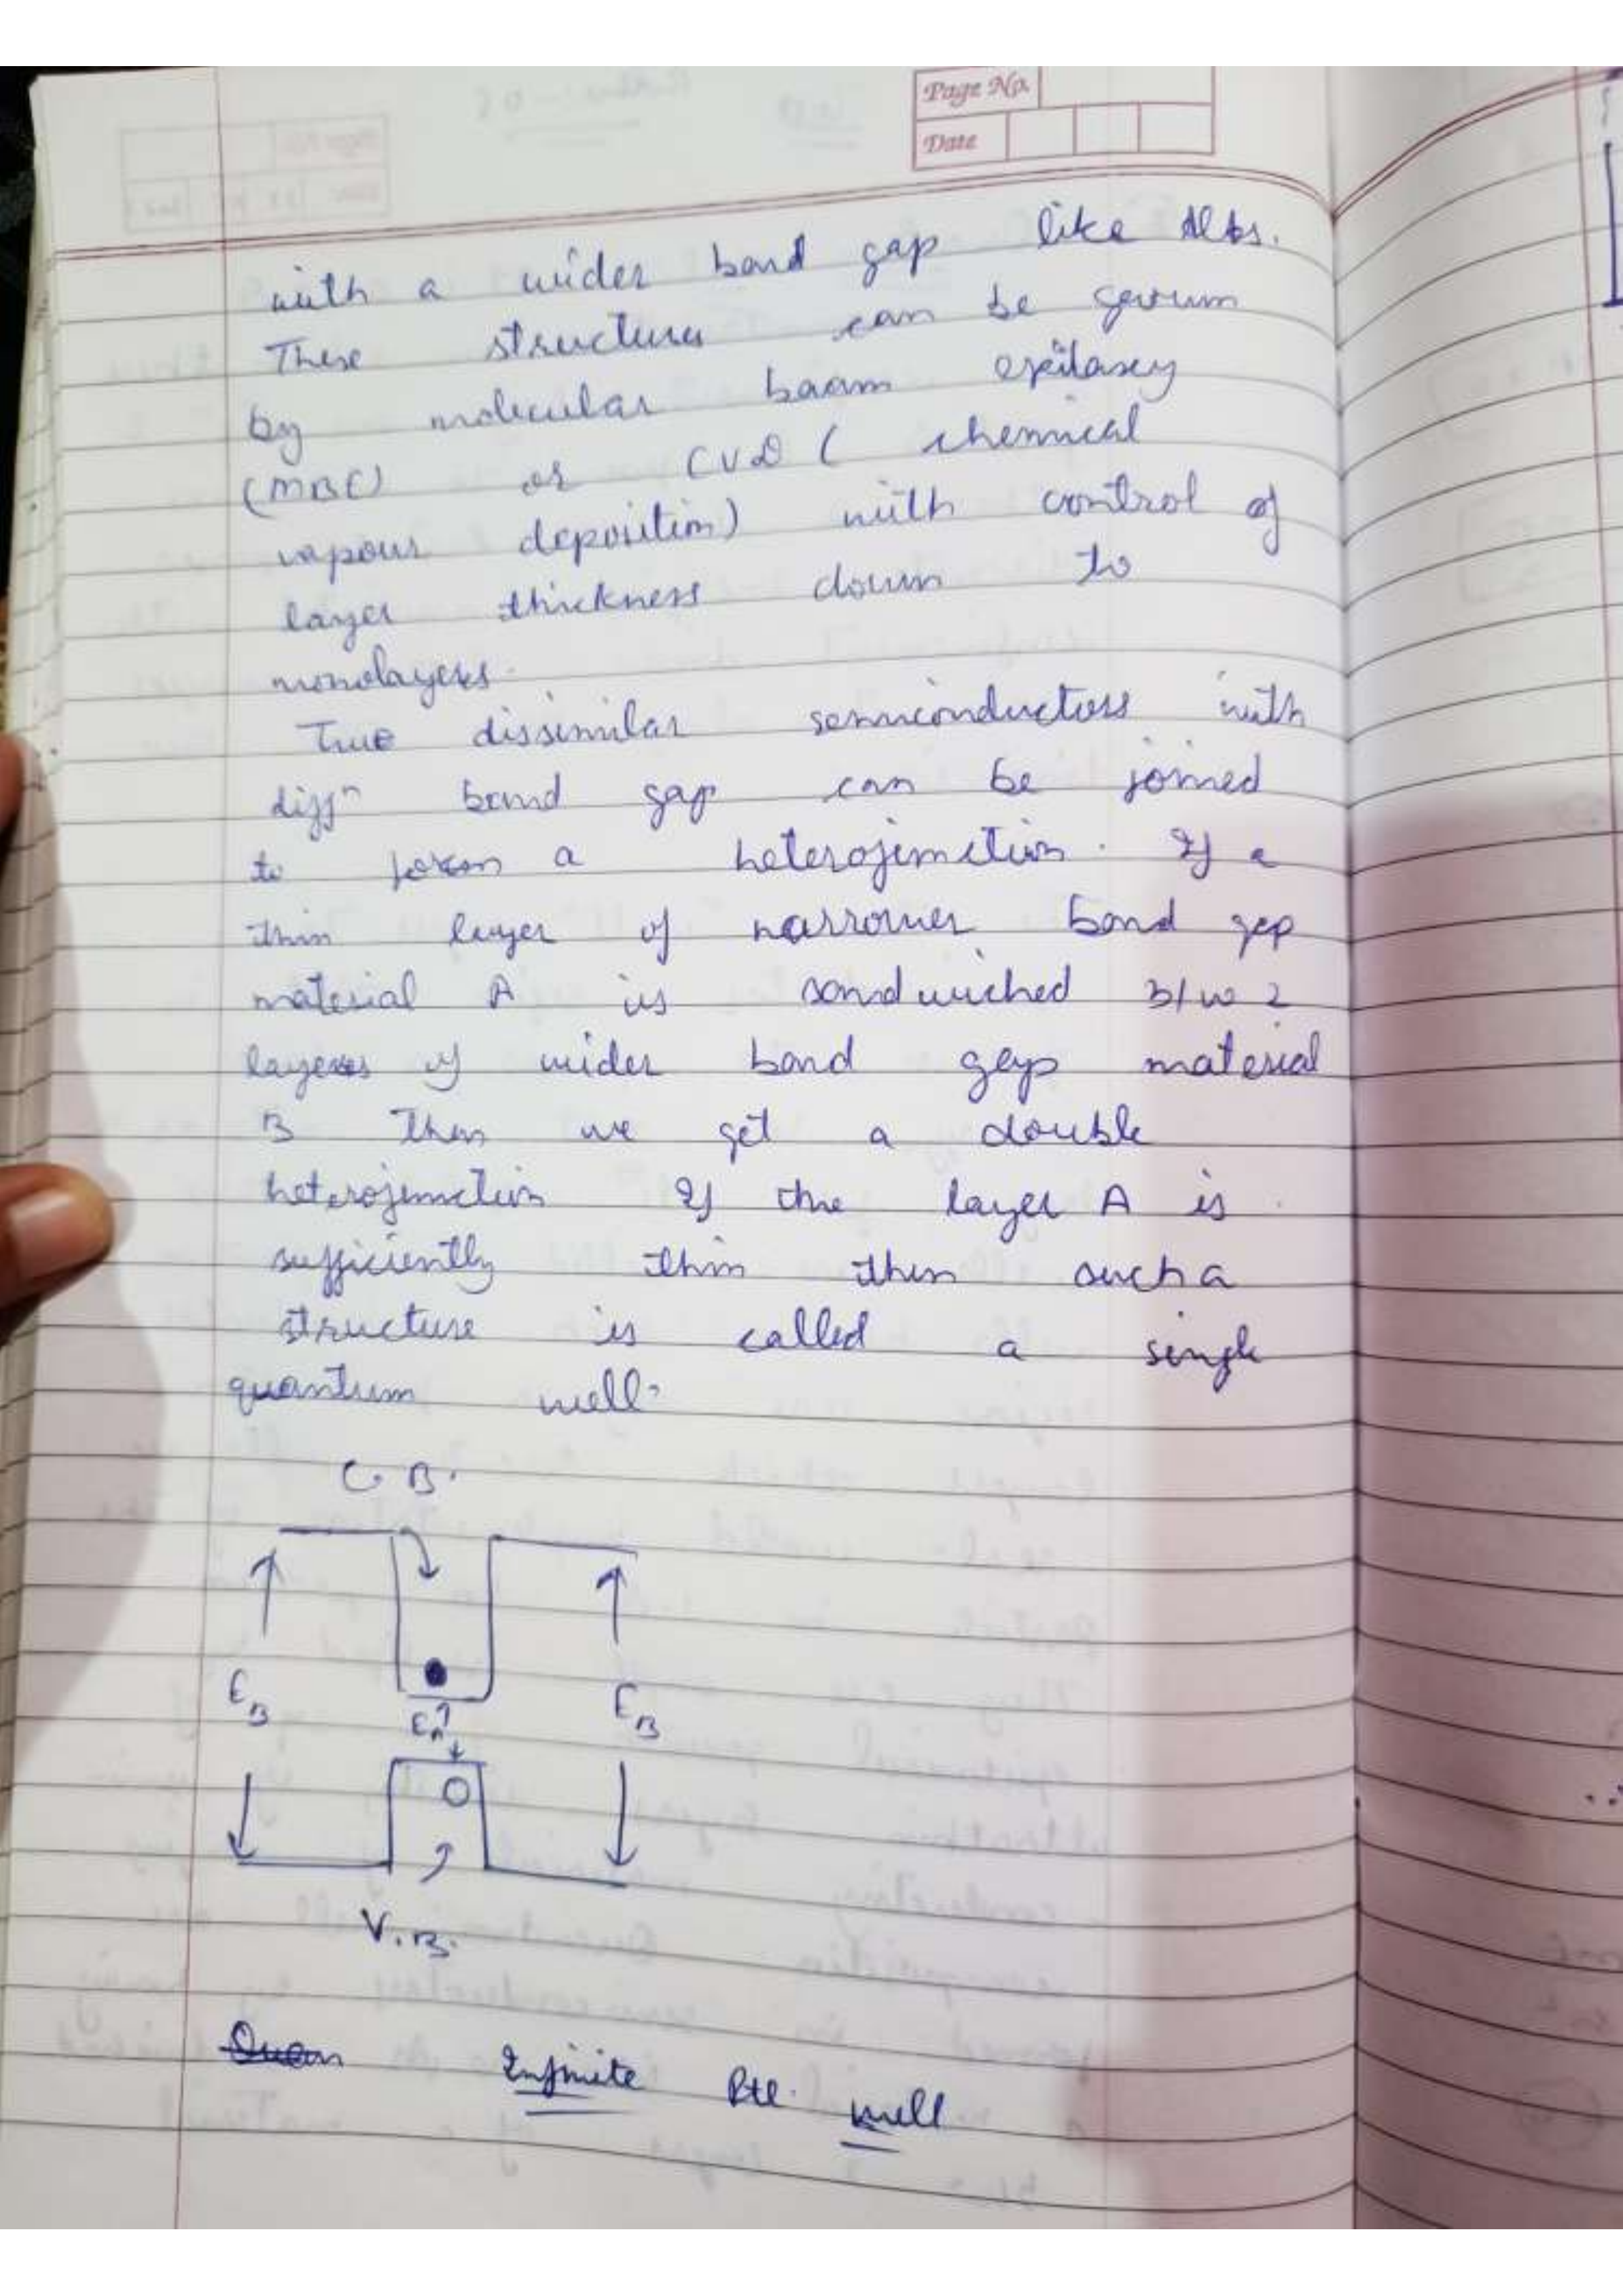 Page No.
Date
with a wider band gap like AlAs.
These structures can be gevrum
by molecular baam epitaxy
(MBC) or CVD ( chemical
vapour deposition) with control of
layer thickness down to
monolayers.
True dissimilar semiconductors with
diffn band gap can be joined
to form a heterojunction. If a
thin layer of narrower band gep
material A is sandwiched B/w 2
layers of wider band gap material
B then we get a double
heterojunction If the layer A is
sufficiently thin then such a
structure is called a single
quantum well.
C.B.
EB EA EB
V.B.
Infinite Ptl. well